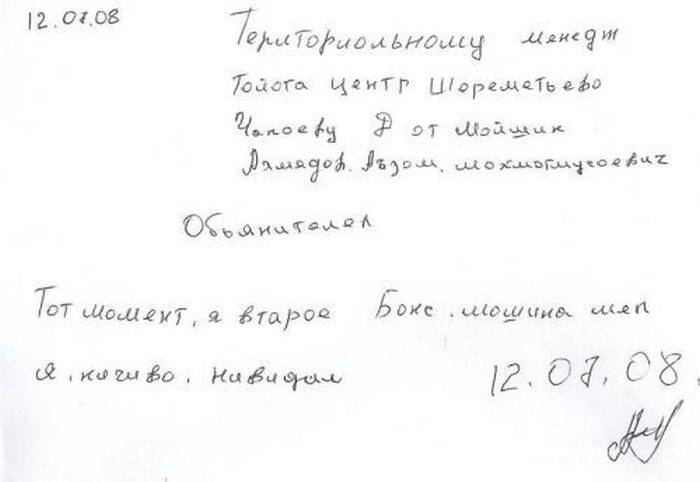 12.07.08
Териториольному менедж
Тойота центр Шореметьево
Чапоеву Д от Мойшик
Ахмедов. Аъзом. мохмотмусоевич
Обьянителел
Тот момент, я втарое Бокс. мошина меп
я. ничиво. нивидал
12.07.08.